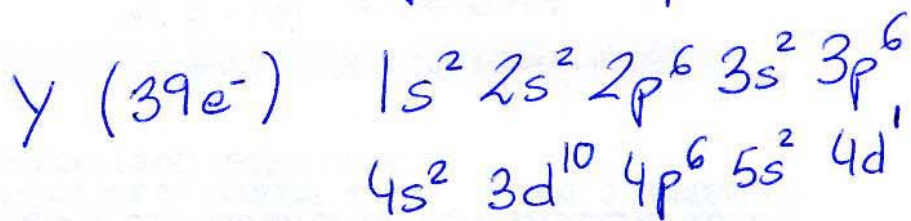 Y (39e⁻) 1s² 2s² 2p⁶ 3s² 3p⁶
4s² 3d¹⁰ 4p⁶ 5s² 4d¹